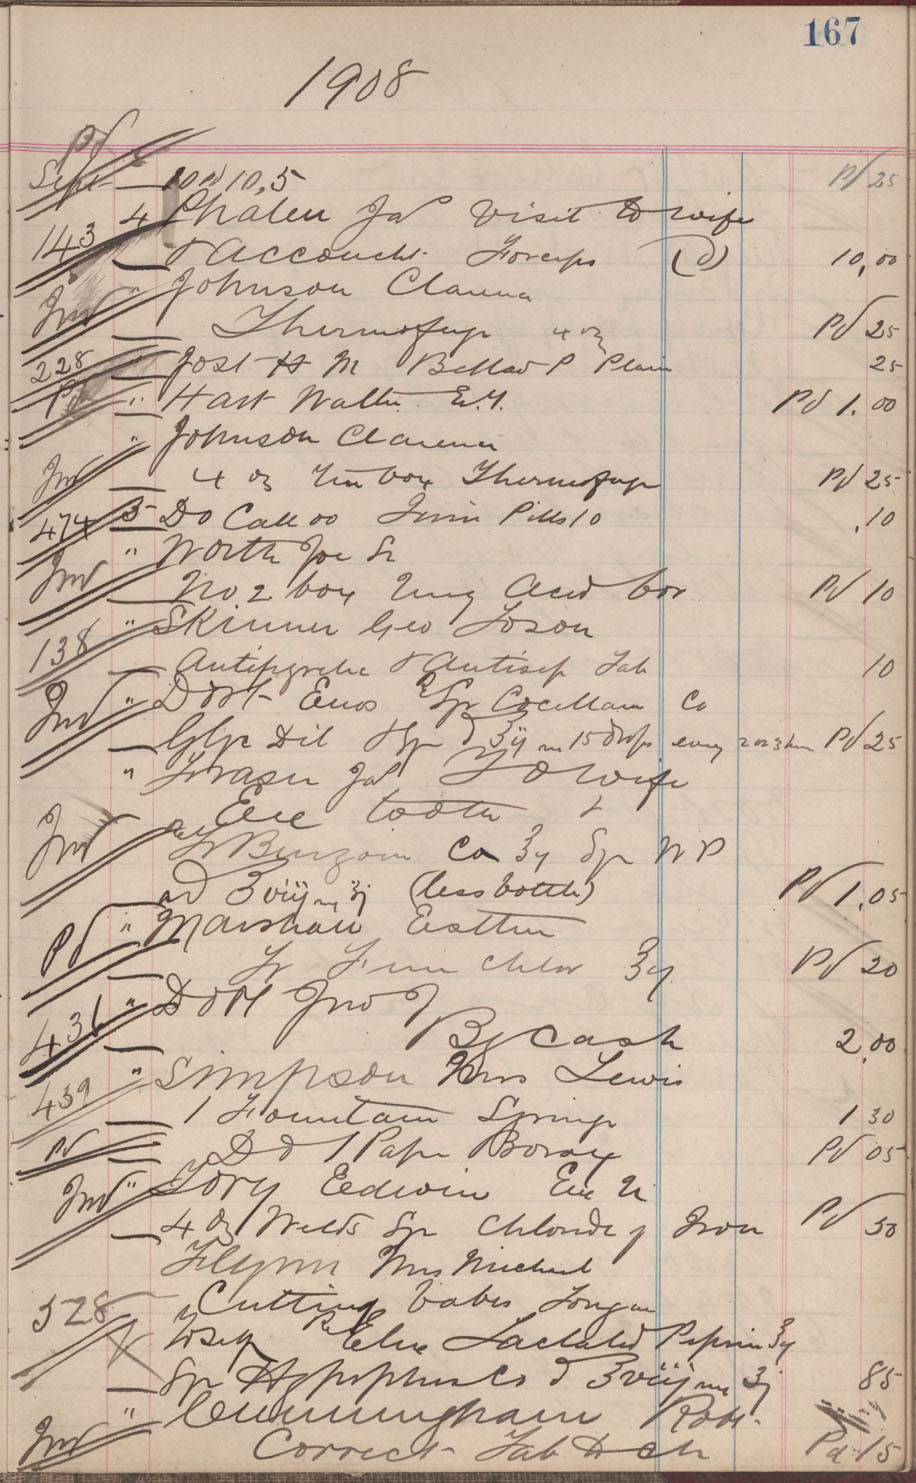 167
1908
Pd
Sept 10 10,5 Pd 25
143 4 Phalen Jas Visit to wife
& Accoucht. Forceps (d) 10,00
Inv " Johnson Clarence
Thermofuge 4 oz Pd 25
228 " Jost H M Bellad P Plain 25
Pd " Hart Walter E.T. Pd 1.00
" Johnson Clarence
Inv 4 oz Tin box Thermofuge Pd 25
474 5 Do Pills 10 .10
Inv " North Joe Sr
No 2 box Ung Acid bor Pd 10
138 " Skinner Geo
& Antisep Tab 10
Inv " Dort Enos Syr Cocillana Co
Glyc Dil 15 drops every 2 or 3 hrs Pd 25
" Fraser Jas & wife
Exc tooth &
Inv Tr Benzoin Co ʒij Syr W P
ad ℥viij (less bottle) Pd 1.05
Pd " Marshall
Tr Ferri Chlor ʒij Pd 20
436 " Dort Jno J
By Cash 2.00
439 " Simpson Mrs Lewis
1 Fountain Syringe 1 30
Pd Do 1 Paper Borax Pd 05
Inv " Tory Edwin
4 oz Welds Syr Chloride of Iron Pd 50
Flynn Mrs Michael
528 Cutting babes Tongue
Elix Lactated Pepsin ℥ij
Syr Hypophos Co ℥viij 85
Inv " Cunningham Robt.
Correct Tab Pd 15